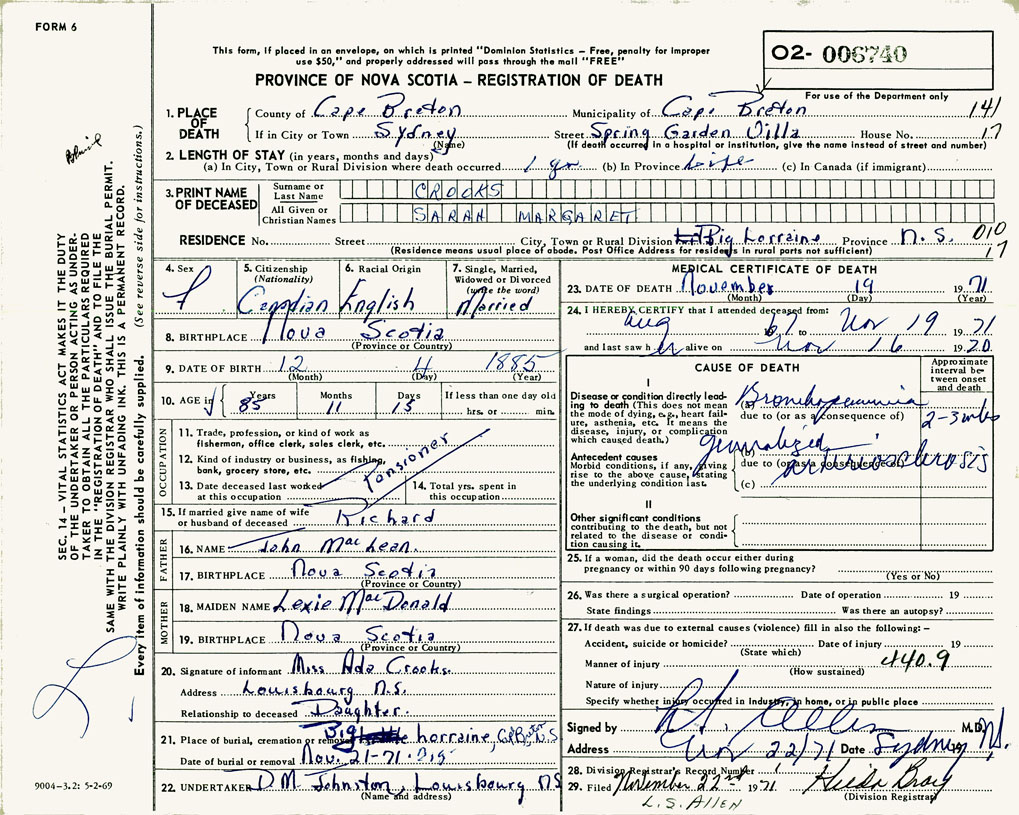 FORM 6
This form, if placed in an envelope, on which is printed "Dominion Statistics – Free, penalty for improper
use $50," and properly addressed will pass through the mail "FREE"
O2- 006740
For use of the Department only
PROVINCE OF NOVA SCOTIA – REGISTRATION OF DEATH
1. PLACE OF DEATH
County of Cape Breton Municipality of Cape Breton 141
If in City or Town Sydney Street Spring Garden Villa House No. 17
(Name) (If death occurred in a hospital or institution, give the name instead of street and number)
2. LENGTH OF STAY (in years, months and days)
(a) In City, Town or Rural Division where death occurred 1 yr (b) In Province Life (c) In Canada (if immigrant)
3. PRINT NAME OF DECEASED
Surname or Last Name CROOKS
All Given or Christian Names SARAH MARGARET
RESIDENCE No. Street City, Town or Rural Division Big Lorraine Province N.S. 010
(Residence means usual place of abode. Post Office Address for residents in rural parts not sufficient) 17
4. Sex F
5. Citizenship (Nationality) Canadian
6. Racial Origin English
7. Single, Married, Widowed or Divorced (write the word) Married
8. BIRTHPLACE Nova Scotia
(Province or Country)
9. DATE OF BIRTH 12 4 1885
(Month) (Day) (Year)
10. AGE in Years 85 Months 11 Days 15 If less than one day old hrs. or min.
OCCUPATION
11. Trade, profession, or kind of work as
fisherman, office clerk, sales clerk, etc.
12. Kind of industry or business, as fishing,
bank, grocery store, etc.
Pensioner
13. Date deceased last worked
at this occupation
14. Total yrs. spent in
this occupation
15. If married give name of wife
or husband of deceased Richard
FATHER
16. NAME John MacLean
17. BIRTHPLACE Nova Scotia
(Province or Country)
MOTHER
18. MAIDEN NAME Lexie MacDonald
19. BIRTHPLACE Nova Scotia
(Province or Country)
20. Signature of informant Miss Ada Crooks
Address Louisbourg N.S.
Relationship to deceased Daughter.
21. Place of burial, cremation or removal Big Lorraine, N.S
Date of burial or removal Nov. 21-71
22. UNDERTAKER D.M. Johnston, Louisbourg NS
(Name and address)
MEDICAL CERTIFICATE OF DEATH
23. DATE OF DEATH November 19 19 71
(Month) (Day) (Year)
24. I HEREBY CERTIFY that I attended deceased from:
Aug 67 to Nov 19 19 71
and last saw her alive on Nov 16 19 70
CAUSE OF DEATH
Approximate interval between onset and death
I
Disease or condition directly leading to death (This does not mean the mode of dying, e.g., heart failure, asthenia, etc. It means the disease, injury, or complication which caused death.)
(a) Bronchopneumonia 2-3 wks
due to (or as a consequence of)
Antecedent causes
Morbid conditions, if any, giving rise to the above cause, stating the underlying condition last.
(b) generalized arteriosclerosis
due to (or as a consequence of)
(c)
II
Other significant conditions
contributing to the death, but not related to the disease or condition causing it.
25. If a woman, did the death occur either during
pregnancy or within 90 days following pregnancy?
(Yes or No)
26. Was there a surgical operation? Date of operation 19
State findings Was there an autopsy?
27. If death was due to external causes (violence) fill in also the following: –
Accident, suicide or homicide? Date of injury 19
(State which)
Manner of injury 440.9
(How sustained)
Nature of injury
Specify whether injury occurred in Industry, in home, or in public place
Signed by M.D.
Address Nov 22/71 Date Sydney N.S.
28. Division Registrar's Record Number
29. Filed November 22nd 19 71 Hilda Gray
(Division Registrar)
L.S. ALLEN
SEC. 14 – VITAL STATISTICS ACT MAKES IT THE DUTY
OF THE UNDERTAKER OR PERSON ACTING AS UNDER-
TAKER TO OBTAIN ALL THE PARTICULARS REQUIRED
IN THE "REGISTRATION OF DEATH" AND TO FILE THE
SAME WITH THE DIVISION REGISTRAR WHO SHALL ISSUE THE BURIAL PERMIT.
WRITE PLAINLY WITH UNFADING INK. THIS IS A PERMANENT RECORD.
Every item of information should be carefully supplied. (See reverse side for instructions.)
9004–3.2: 5-2-69